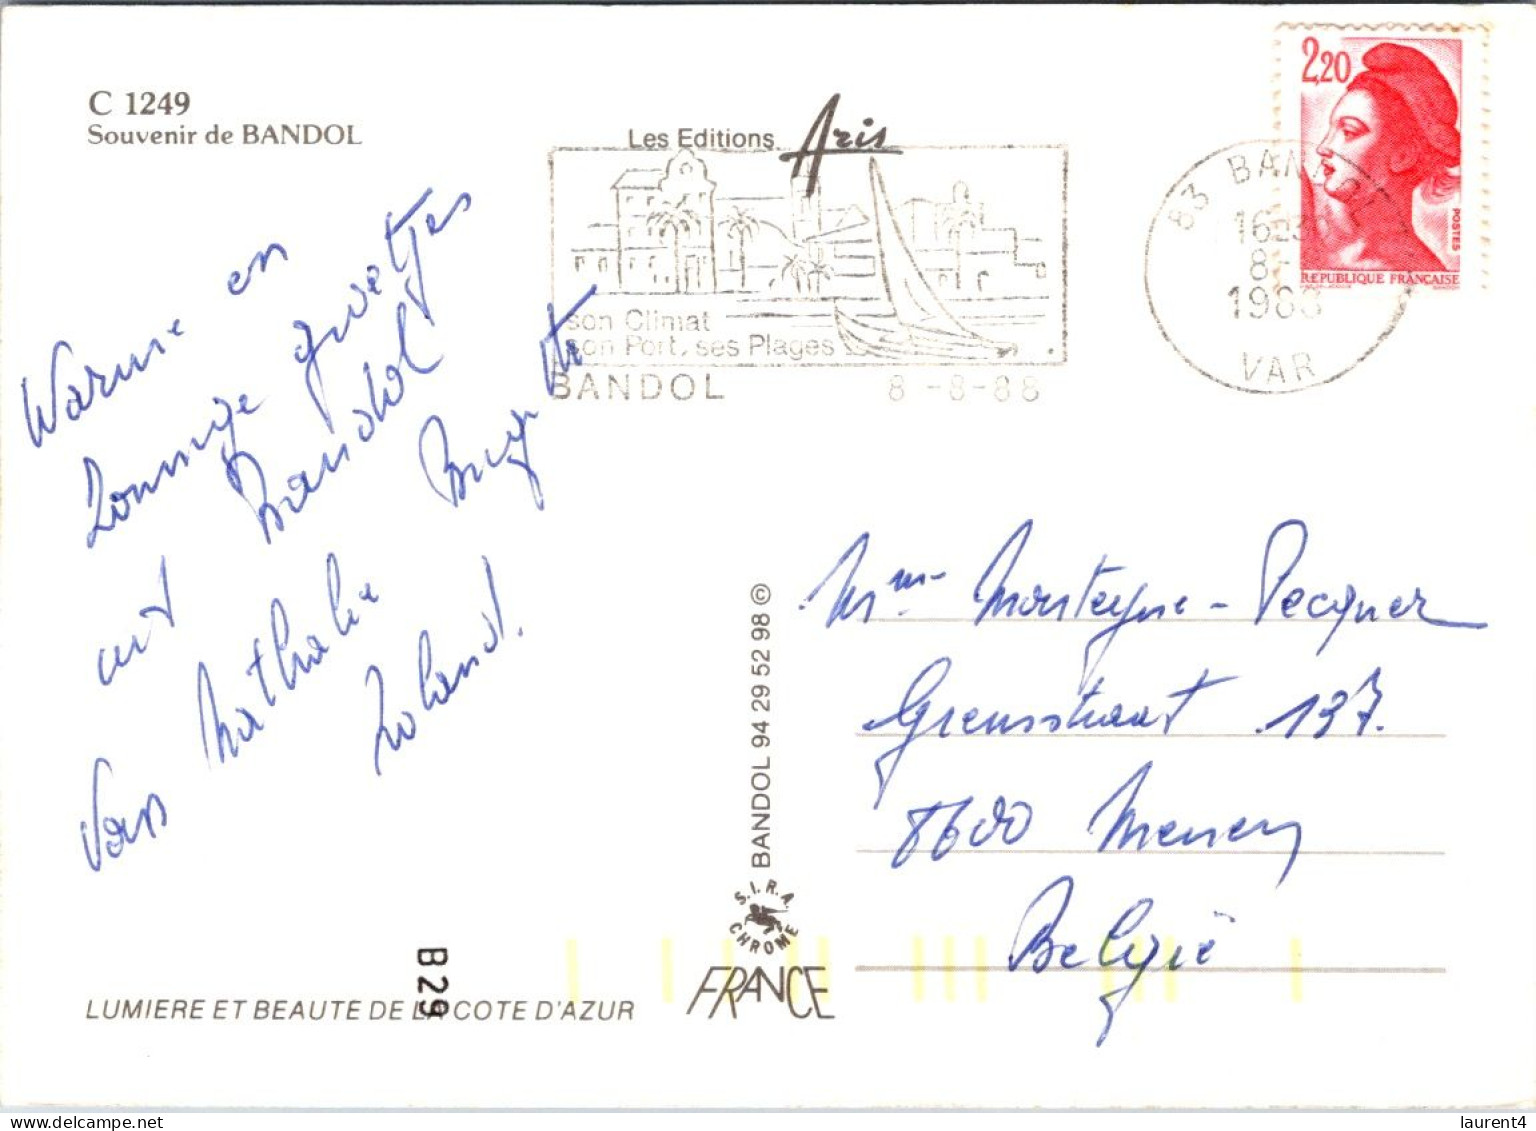 C 1249
Souvenir de BANDOL
Les Editions Aris
2,20
POSTES
REPUBLIQUE FRANÇAISE
83 BANDOL
16
8-
1988
VAR
son Climat
son Port, ses Plages
BANDOL
8-8-88
Warme en
zonnige groetjes
uit Bandol
Van Nathalie Brigitte
Roland.
Mme Montegne - Pecquer
Grensstraat 137.
8600 Menen
België
BANDOL 94 29 52 98 ©
S.I.R.A.
CHROME
FRANCE
B 29
LUMIERE ET BEAUTE DE LA COTE D'AZUR
laurent4